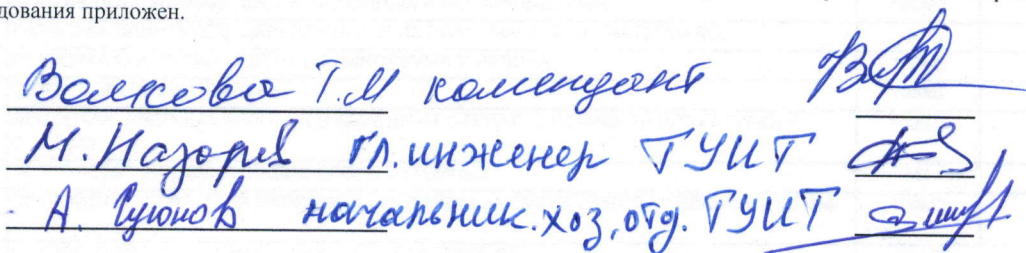 дования приложен.
Волкова Т.М комендант
М. Назаров гл. инженер ТУИТ
А. Суюнов начальник. хоз, отд. ТУИТ